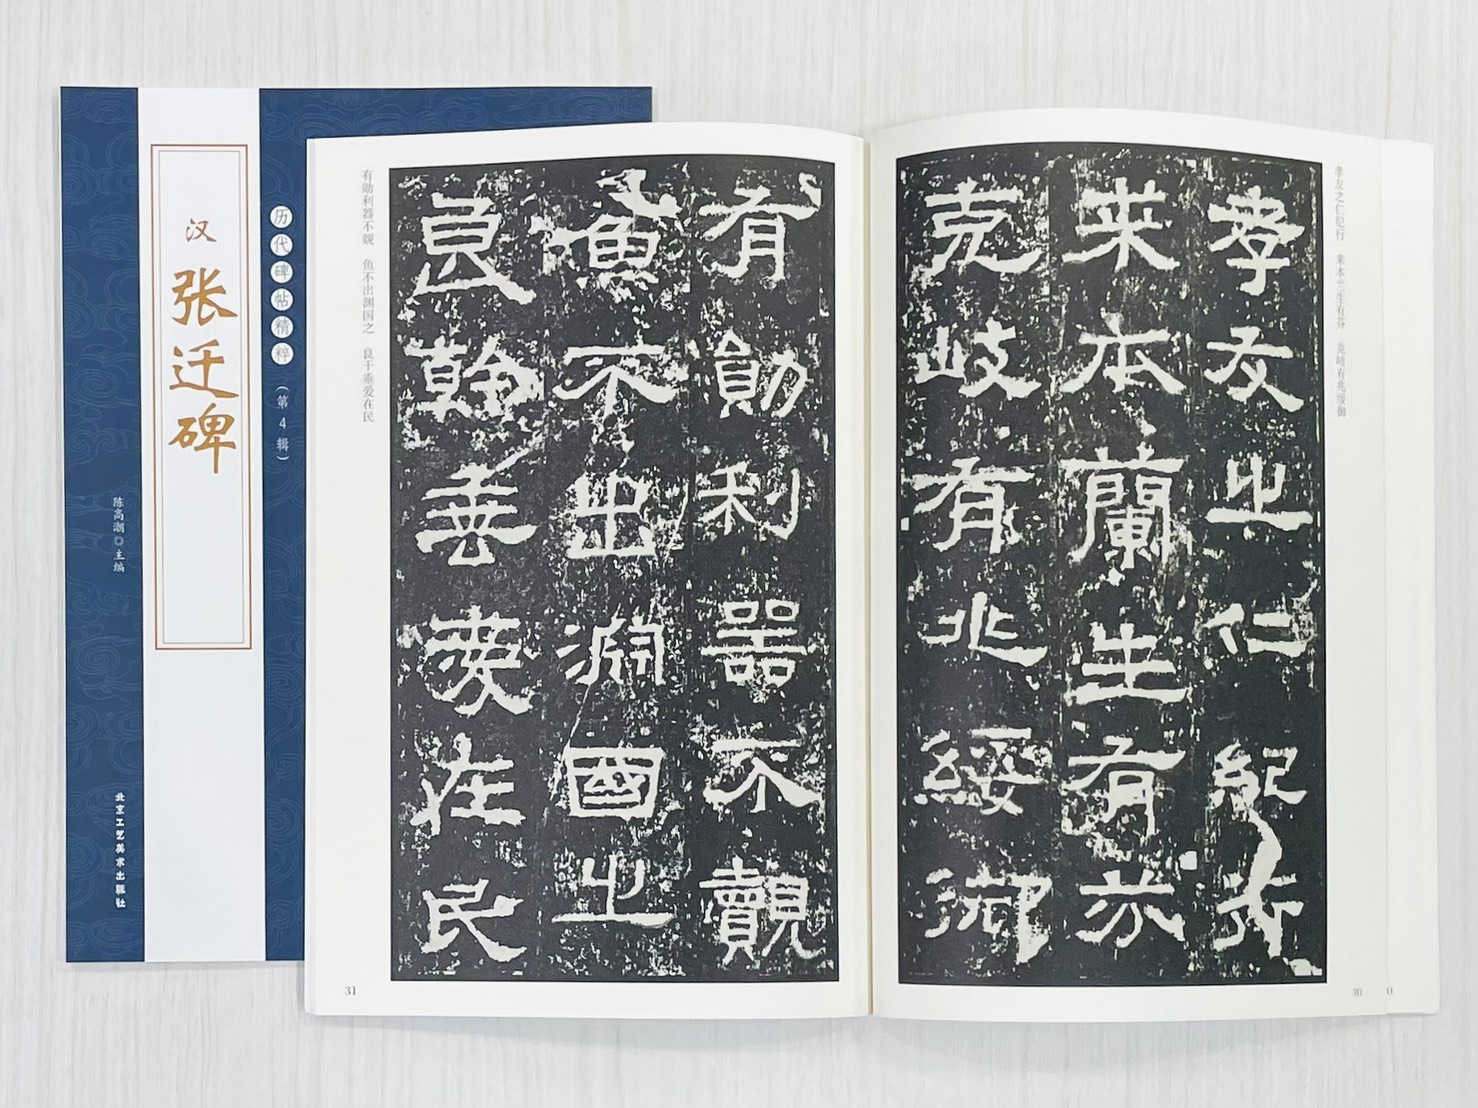 汉
张迁碑
历代碑帖精粹
(第4辑)
陈高潮◎主编
北京工艺美术出版社
孝友之仁纪行 来本兰生有芬 克岐有兆绥御
孝友之仁紀行
来本蘭生有芬
克岐有兆綏御
30
有勋利器不觌 鱼不出渊国之 良干垂爱在民
有勛利器不覿
魚不出淵國之
良幹垂愛在民
31